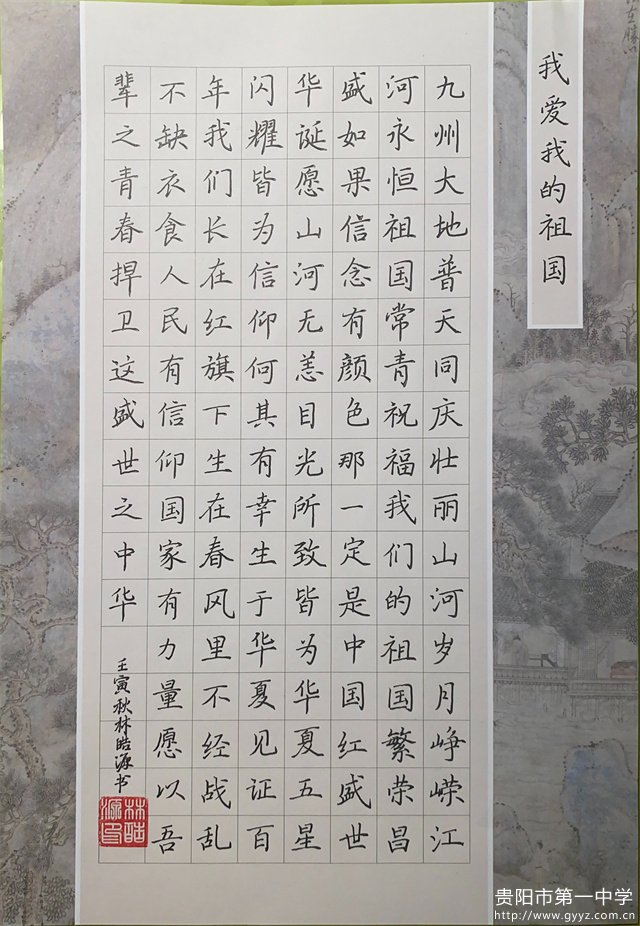 我爱我的祖国
九州大地普天同庆壮丽山河岁月峥嵘江
河永恒祖国常青祝福我们的祖国繁荣昌
盛如果信念有颜色那一定是中国红盛世
华诞愿山河无恙目光所致皆为华夏五星
闪耀皆为信仰何其有幸生于华夏见证百
年我们长在红旗下生在春风里不经战乱
不缺衣食人民有信仰国家有力量愿以吾
辈之青春捍卫这盛世之中华
壬寅秋林皓源书
贵阳市第一中学
http://www.gyyz.com.cn